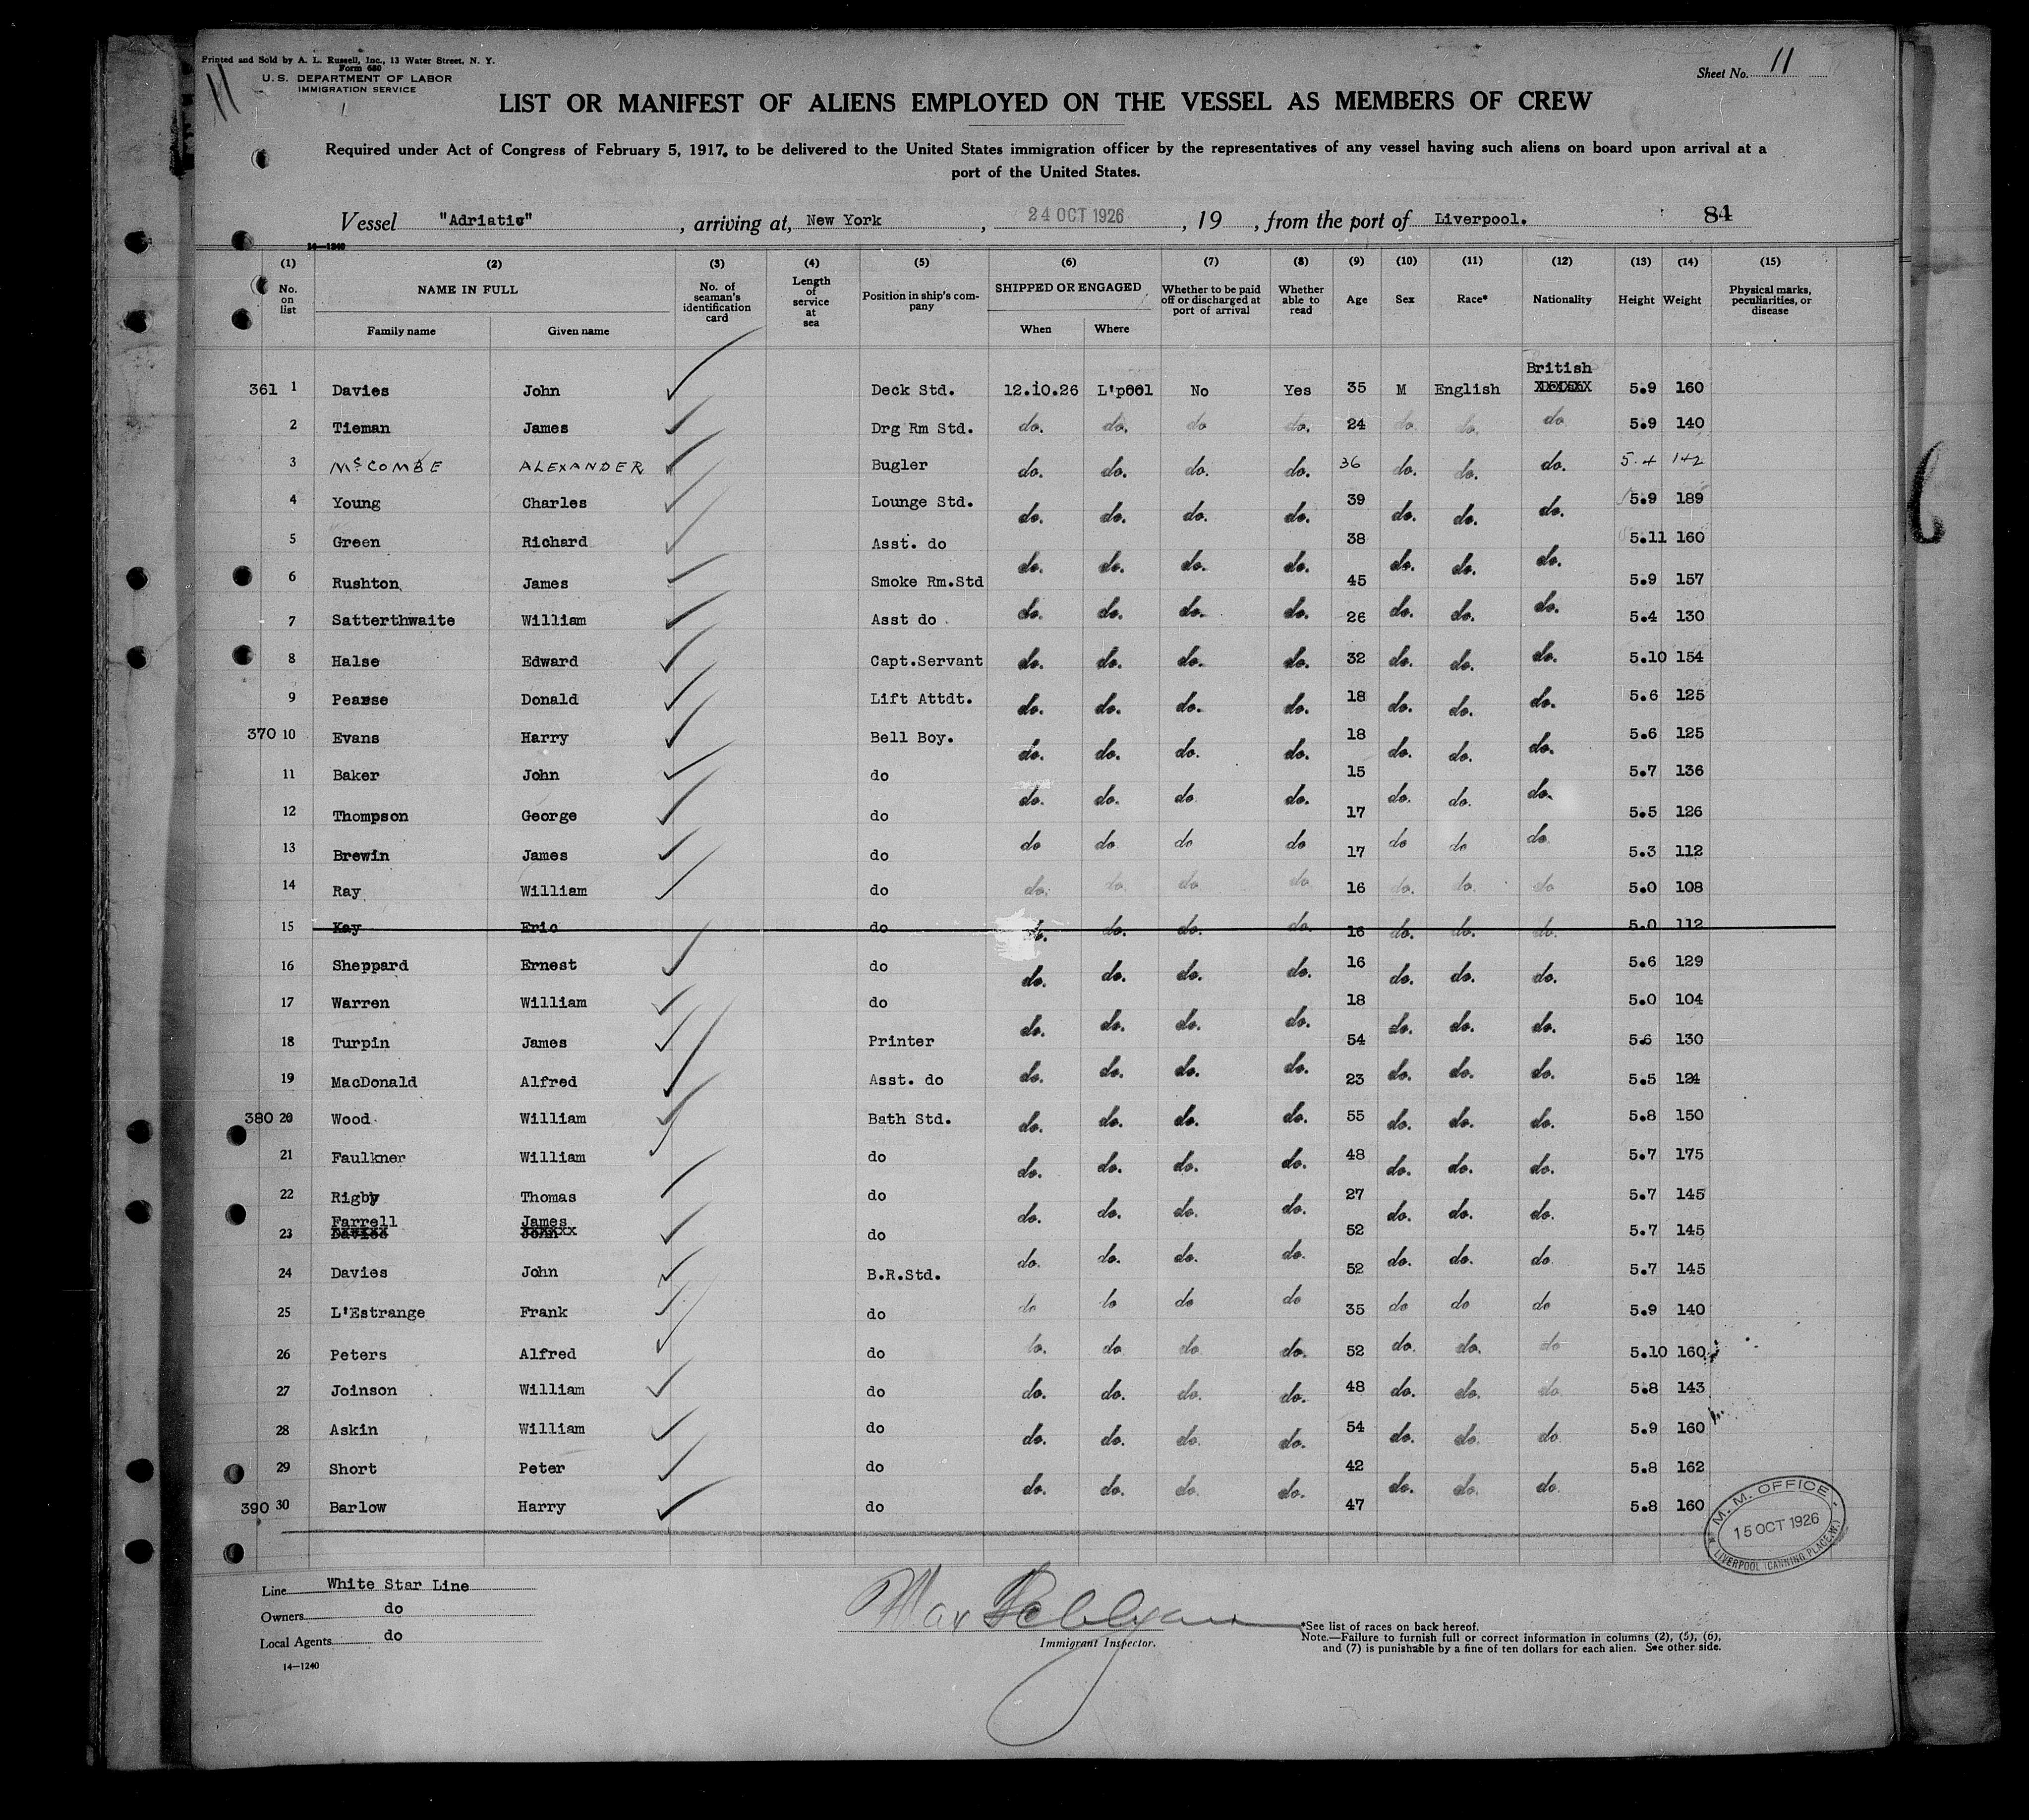 Printed and Sold by A. L. Russell, Inc., 13 Water Street, N. Y.
Form 680
U. S. DEPARTMENT OF LABOR
IMMIGRATION SERVICE
11
Sheet No. 11
LIST OR MANIFEST OF ALIENS EMPLOYED ON THE VESSEL AS MEMBERS OF CREW
Required under Act of Congress of February 5, 1917, to be delivered to the United States immigration officer by the representatives of any vessel having such aliens on board upon arrival at a
port of the United States.
Vessel "Adriatic", arriving at, New York, 24 OCT 1926, 19 , from the port of Liverpool. 84
14—1240
(1) (2) (3) (4) (5) (6) (7) (8) (9) (10) (11) (12) (13) (14) (15)
No. on list NAME IN FULL Family name Given name No. of seaman's identification card Length of service at sea Position in ship's company SHIPPED OR ENGAGED When Where Whether to be paid off or discharged at port of arrival Whether able to read Age Sex Race* Nationality Height Weight Physical marks, peculiarities, or disease
British
361 1 Davies John Deck Std. 12.10.26 L'pool No Yes 35 M English 5.9 160
2 Tieman James Drg Rm Std. do. do. do do. 24 do. do. do 5.9 140
3 McCOMBE ALEXANDER Bugler do. do. do. do. 36 do. do. do. 5.4 142
4 Young Charles Lounge Std. do. do. do. do. 39 do. do. do. 5.9 189
5 Green Richard Asst. do do. do. do. do. 38 do. do. do. 5.11 160
6 Rushton James Smoke Rm.Std do. do. do. do. 45 do. do. do. 5.9 157
7 Satterthwaite William Asst do do. do. do. do. 26 do. do. do. 5.4 130
8 Halse Edward Capt.Servant do. do. do. do. 32 do. do. do. 5.10 154
9 Pearse Donald Lift Attdt. do. do. do. do. 18 do. do. do. 5.6 125
370 10 Evans Harry Bell Boy. do. do. do. do. 18 do. do. do. 5.6 125
11 Baker John do do. do. do. do. 15 do. do. do. 5.7 136
12 Thompson George do do do do do 17 do do do 5.5 126
13 Brewin James do do. do. do do. 17 do. do. do 5.3 112
14 Ray William do do. do. do. do. 16 do. do. do. 5.0 108
15 Kay Eric do do. do. do. do. 16 do. do. do. 5.0 112
16 Sheppard Ernest do do. do. do. do. 16 do. do. do. 5.6 129
17 Warren William do do. do. do. do. 18 do. do. do. 5.0 104
18 Turpin James Printer do. do. do. do. 54 do. do. do. 5.6 130
19 MacDonald Alfred Asst. do do. do. do. do. 23 do. do. do. 5.5 124
380 20 Wood William Bath Std. do. do. do. do. 55 do. do. do. 5.8 150
21 Faulkner William do do. do. do. do. 48 do. do. do. 5.7 175
22 Rigby Thomas do do. do. do. do. 27 do. do. do. 5.7 145
Farrell James
23 Davies John do do. do. do. do. 52 do. do. do 5.7 145
24 Davies John B.R.Std. do do do do 52 do do do 5.7 145
25 L'Estrange Frank do do. do do. do. 35 do. do. do 5.9 140
26 Peters Alfred do do. do. do. do. 52 do. do. do 5.10 160
27 Joinson William do do. do. do. do. 48 do. do. do. 5.8 143
28 Askin William do do. do. do. do. 54 do. do. do 5.9 160
29 Short Peter do do. do. do. do. 42 do. do. do. 5.8 162
390 30 Barlow Harry do 47 5.8 160
M. M. OFFICE
15 OCT 1926
LIVERPOOL (CANNING PLACE.W.)
Line White Star Line
Owners do
Local Agents do
14—1240
Max
Immigrant Inspector.
*See list of races on back hereof.
Note.—Failure to furnish full or correct information in columns (2), (5), (6),
and (7) is punishable by a fine of ten dollars for each alien. See other side.